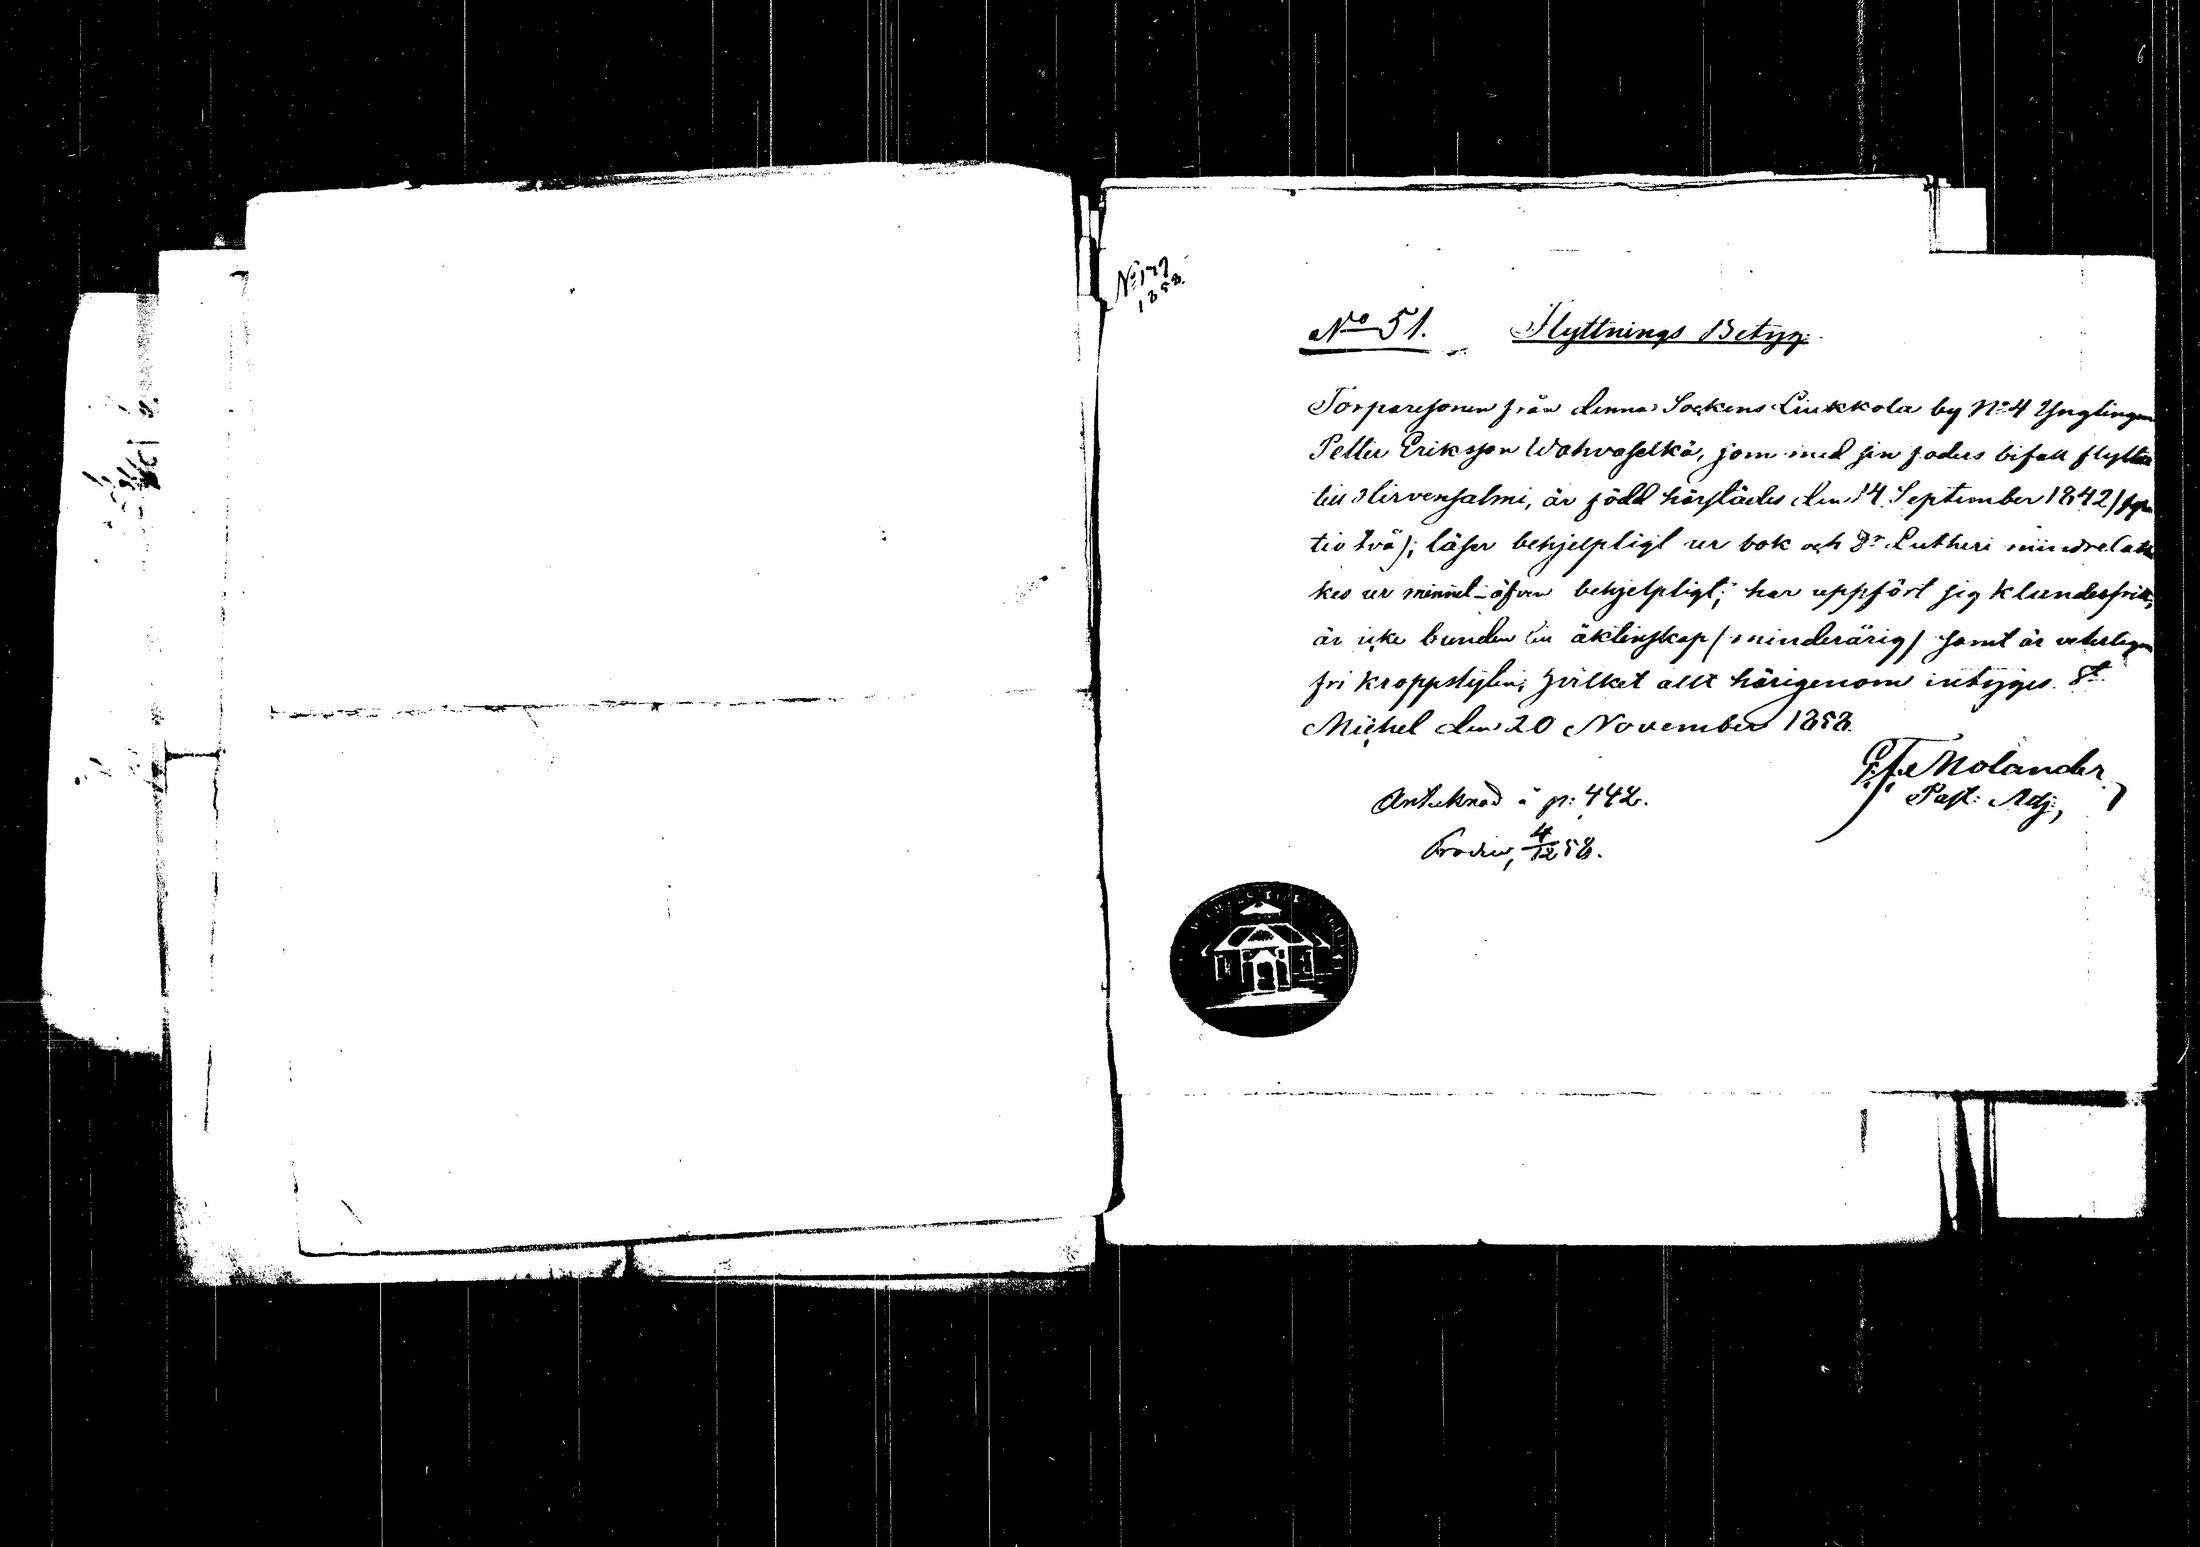 No 147
1858.
No 51. Flyttnings Betyg.
Torparesonen från denna Sockens Liukkola by No 4 Ynglingen
Petter Eriksson Wahvaselkä, som med sin faders bifall flyttar
till Hirvensalmi, är född härstädes den 14 September 1842 /
tio två/; läser behjelpligt ur bok och Dr Lutheri mindre Cate
kes ur minnet äfven behjelpligt; har uppfört sig klanderfritt,
är icke bunden till äktenskap /minderårig/ samt är veterligen
fri kroppslyten; Hvilket allt härigenom intygas. St
Michel den 20 November 1858.
Molander
Past: Adj:
Antecknad å p: 442.
4/12 58.